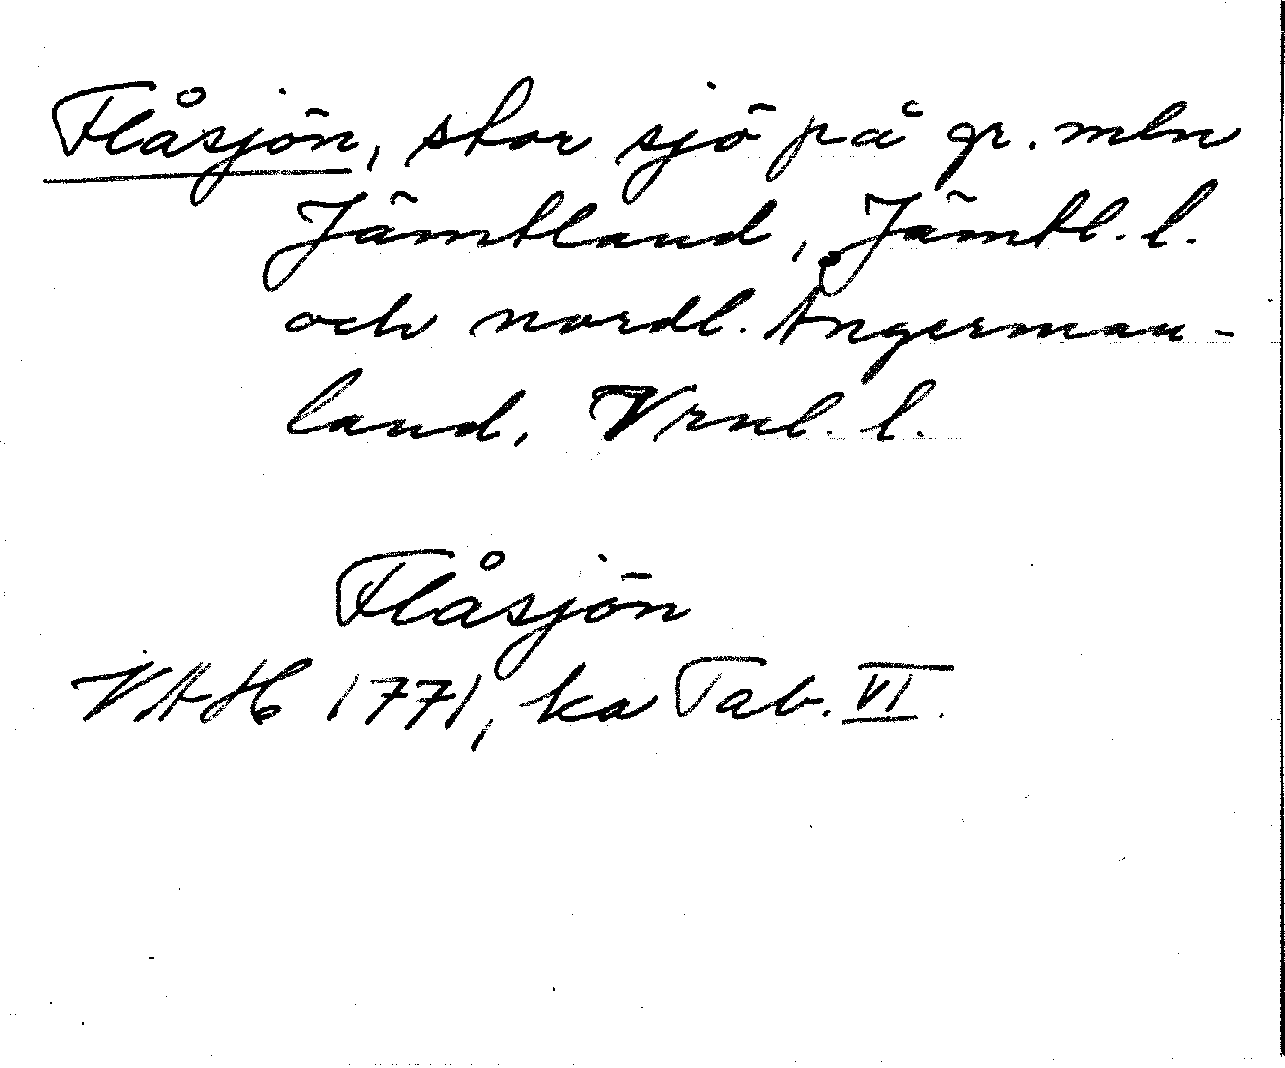 Flåsjön, stor sjö på gr. mln
Jämtland, Jämtl. l.
och nordl. Ångerman-
land, Vrnl. l.
Flåsjön
VAH 1771, ka Tab. VI.